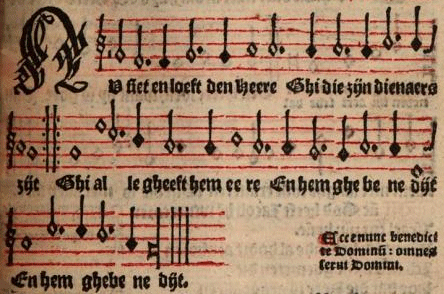 NU siet en looft den heere Ghi die zijn dienaers
zijt Ghi al le gheeft hem ee re En hem ghe be ne dijt
En hem ghebe ne dijt.
Ecce nunc benedici
te Dominū: omnes
serui Domini.